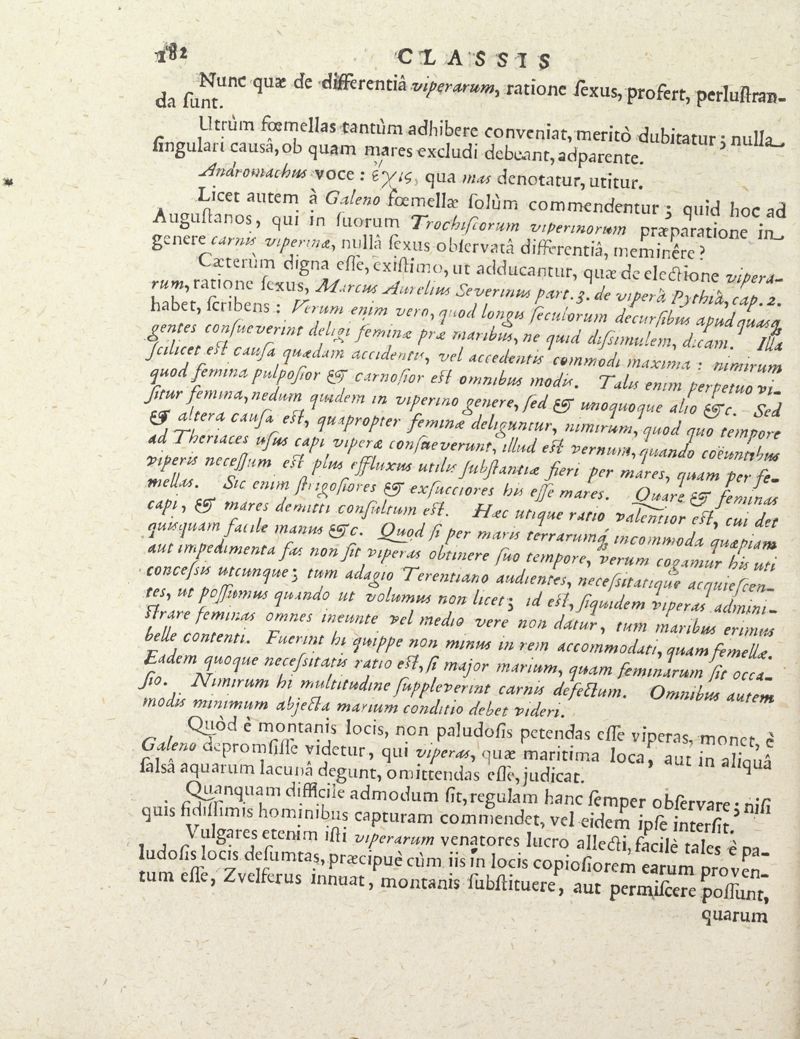 182
CLASSIS
Nunc quæ de differentiâ viperarum, ratione ſexus, profert, perluſtran-
da ſunt.
Utrùm fœmellas tantùm adhibere conveniat, meritò dubitatur; nulla
ſingulari causâ, ob quam mares excludi debeant, adparente.
Andromachus voce: ἔχις, qua mas denotatur, utitur.
Licet autem à Galeno fœmellæ ſolùm commendentur; quid hoc ad
Auguſtanos, qui in ſuorum Trochiſcorum viperinorum præparatione in
genere carnis viperinæ, nullâ ſexus obſervatâ differentiâ, meminêre?
Cæterùm digna eſſe, exiſtimo, ut adducantur, quæ de electione vipera-
rum, ratione ſexus, Marcus Aurelius Severinus part. 3. de viperâ Pythiâ, cap. 2.
habet, ſcribens: Verum enim vero, quod longis ſeculorum decurſibus apud quasq́
gentes conſueverint deligi feminæ præ maribus, ne quid diſsimulem, dicam. Illa
ſcilicet eſt cauſa quædam accidentis, vel accedentis commodi maxima: nimirum
quod femina pulpoſior & carnoſior eſt omnibus modis. Talis enim perpetuo vi-
ſitur femina, nedum quidem in viperino genere, ſed & unoquoque alio &c. Sed
& altera cauſa eſt, quapropter feminæ deliguntur, nimirum, quod quo tempore
ad Theriaces uſus capi viperæ conſueverunt, illud eſt vernum, quando coëuntibus
viperis neceſſum eſt plus effluxus utilis ſubſtantiæ fieri per mares, quam per fe-
mellas. Sic enim ſtrigoſiores & exſucciores his eſſe mares. Quare & feminas
capi, & mares demitti conſultum eſt. Hæc utique ratio valentior eſt, cui det
quisquam facile manus &c. Quod ſi per maris terrarumq́ incommoda quæpiam
aut impedimenta fas non ſit viperas obtinere ſuo tempore, verum cogamur his uti
conceſsis utcunque; tum adagio Terentiano audientes, neceſsitatique acquieſcen-
tes, ut poſſumus quando ut volumus non licet; id eſt, ſiquidem viperas admini-
ſtrare feminas omnes ineunte vel medio vere non datur, tum maribus erimus
belle contenti. Fuerint hi quippe non minus in rem accommodati, quam femellæ.
Eadem quoque neceſsitatis ratio eſt, ſi major marium, quam feminarum ſit occa-
ſio. Nimirum hi multitudine ſuppleverint carnis defectum. Omnibus autem
modis minimum abjecta marium conditio debet videri.
Quòd è montanis locis, non paludoſis petendas eſſe viperas, monet, è
Galeno depromſiſſe videtur, qui viperas, quæ maritima loca, aut in aliquâ
ſalsâ aquarum lacunâ degunt, omittendas eſſe, judicat.
Quanquam difficile admodum ſit, regulam hanc ſemper obſervare; niſi
quis fidiſſimis hominibus capturam commendet, vel eidem ipſe interſit.
Vulgares etenim iſti viperarum venatores lucro allecti, facilè tales è pa-
ludoſis locis deſumtas, præcipuè cùm iis in locis copioſiorem earum proven-
tum eſſe, Zvelferus innuat, montanis ſubſtituere, aut permiſcere poſſunt,
quarum